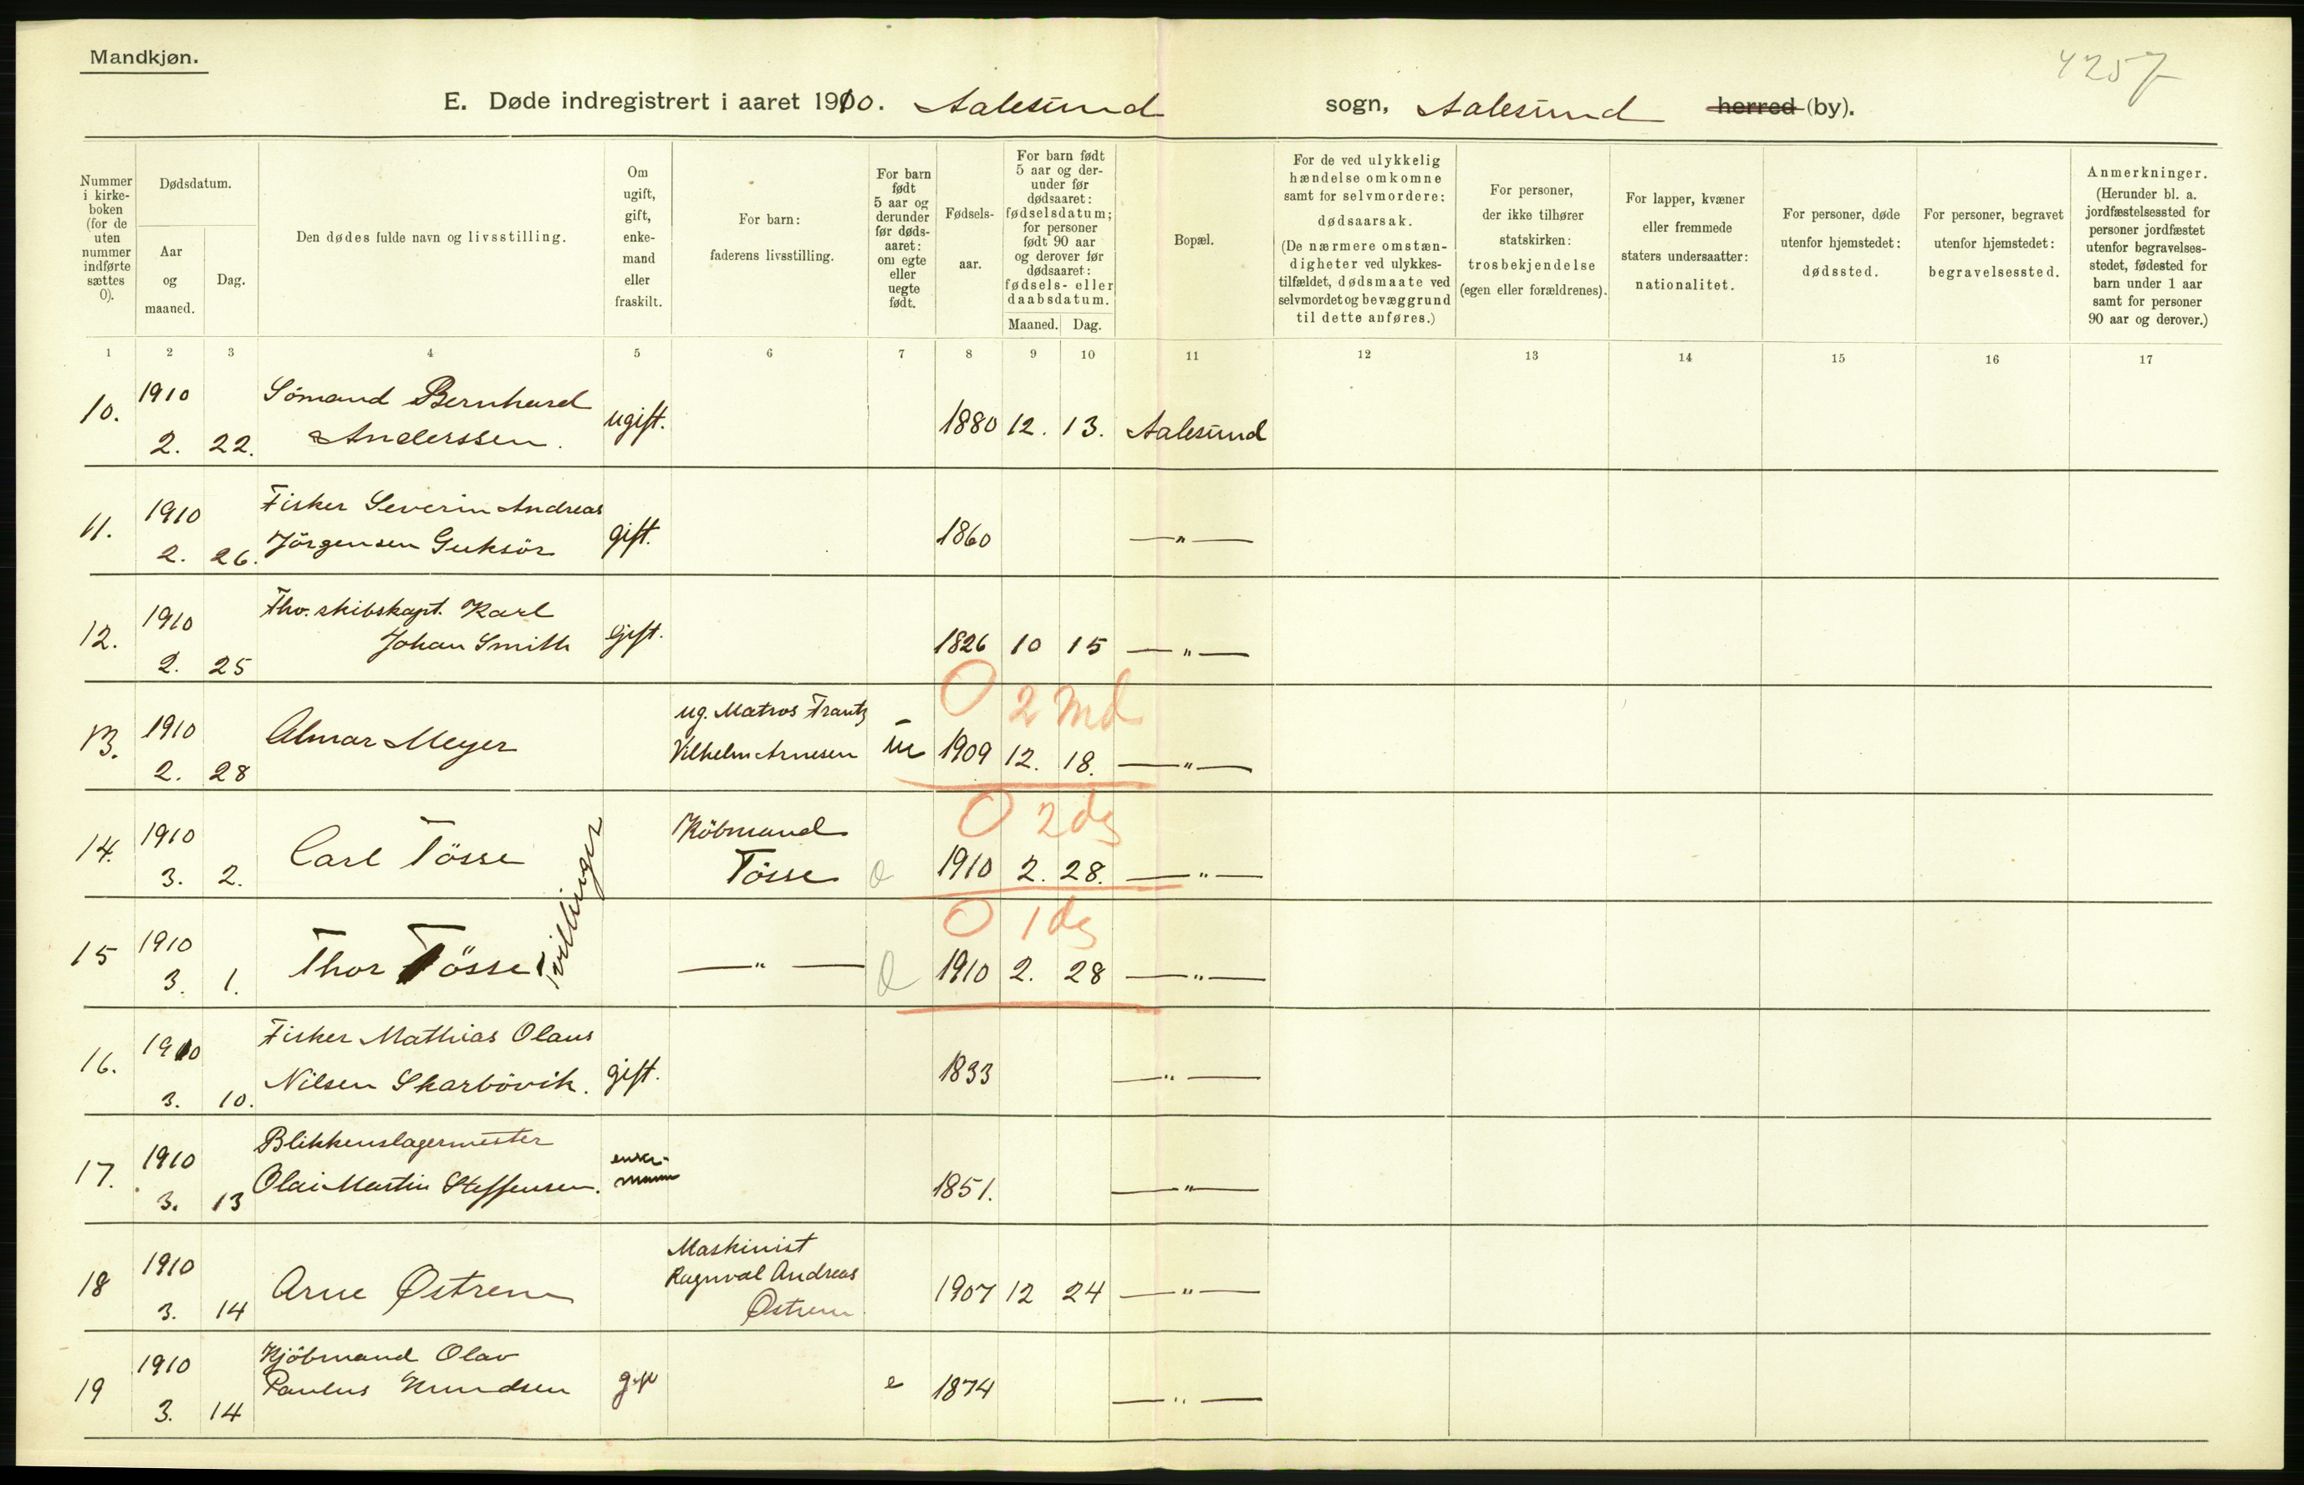 Mandkjøn.
4257
E. Døde indregistrert i aaret 1910. Aalesund sogn, Aalesund herred (by).
Nummer i kirkeboken (for de uten nummer indførte sættes 0).
Dødsdatum.
Aar og maaned.
Dag.
Den dødes fulde navn og livsstilling.
Om ugift, gift, enkemand eller fraskilt.
For barn: faderens livsstilling.
For barn født 5 aar og derunder før dødsaaret: om egte eller uegte født.
Fødselsaar.
For barn født 5 aar og derunder før dødsaaret: fødselsdatum; for personer født 90 aar og derover før dødsaaret: fødsels- eller daabsdatum.
Maaned. Dag.
Bopæl.
For de ved ulykkelig hændelse omkomne samt for selvmordere: dødsaarsak. (De nærmere omstændigheter ved ulykkestilfældet, dødsmaate ved selvmordet og bevæggrund til dette anføres.)
For personer, der ikke tilhører statskirken: trosbekjendelse (egen eller forældrenes).
For lapper, kvæner eller fremmede staters undersaatter: nationalitet.
For personer, døde utenfor hjemstedet: dødssted.
For personer, begravet utenfor hjemstedet: begravelsessted.
Anmerkninger. (Herunder bl. a. jordfæstelsessted for personer jordfæstet utenfor begravelsesstedet, fødested for barn under 1 aar samt for personer 90 aar og derover.)
1 2 3 4 5 6 7 8 9 10 11 12 13 14 15 16 17
10. 1910 Sömand Bernhard
2. 22. Anderssen. ugift. 1880 12. 13. Aalesund
11. 1910 Fisker Severin Andreas
2. 26. Jörgensen Guksör gift. 1860 —"—
12. 1910 Fhv. skibskapt. Karl
2. 25 Johan Smith Gift. 1826 10 15 —"—
0 2 Md
13. 1910 Almar Meyer ug. Matros Frantz
2. 28 Vilhelm Arnesen u 1909 12. 18. —"—
0 2 dg
14. 1910 Carl Tösse Köbmand
3. 2. Tösse O 1910 2. 28. —"—
Tvillinger
0 1 dg
15 1910 Thor Tösse —"— O
3. 1. 1910 2. 28 —"—
16. 1910 Fisker Mathias Olaus
3. 10. Nilsen Skarbövik. gift. 1833 —"—
17. 1910 Blikkenslagermester enke-
3. 13 Olai Martin Steffensen. mann 1851. —"—
18 1910 Arne Østrem Maskinist
Ragnval Andreas
3. 14 Østrem 1907 12 24 —"—
19 1910 Kjöbmand Olav
Paulus Knudsen gift e 1874
3. 14 —"—